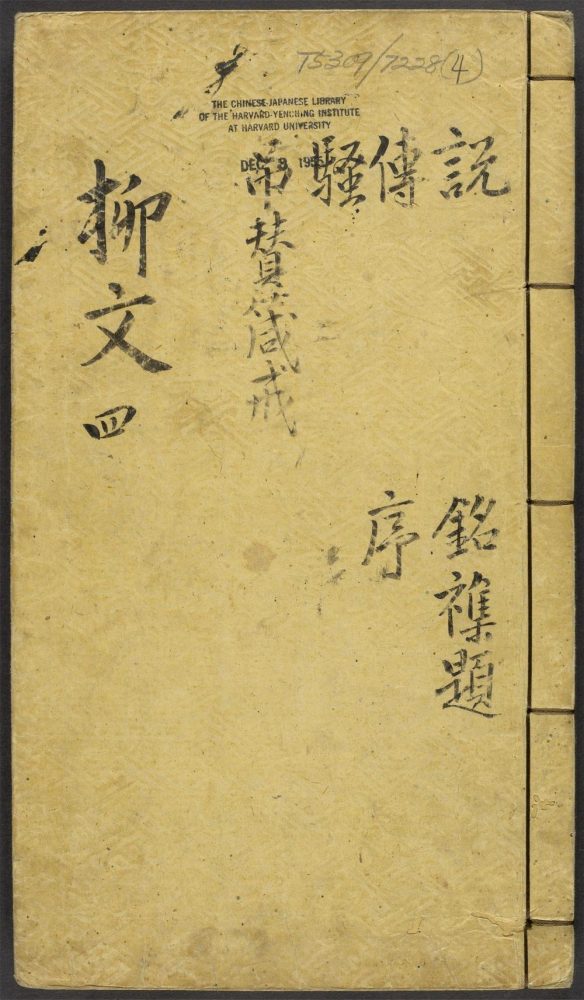 T5309/7228(4)
THE CHINESE-JAPANESE LIBRARY
OF THE HARVARD-YENCHING INSTITUTE
AT HARVARD UNIVERSITY
DEC 3
說
傳
騷
吊贊箴戒
銘襍題
序
柳文 四